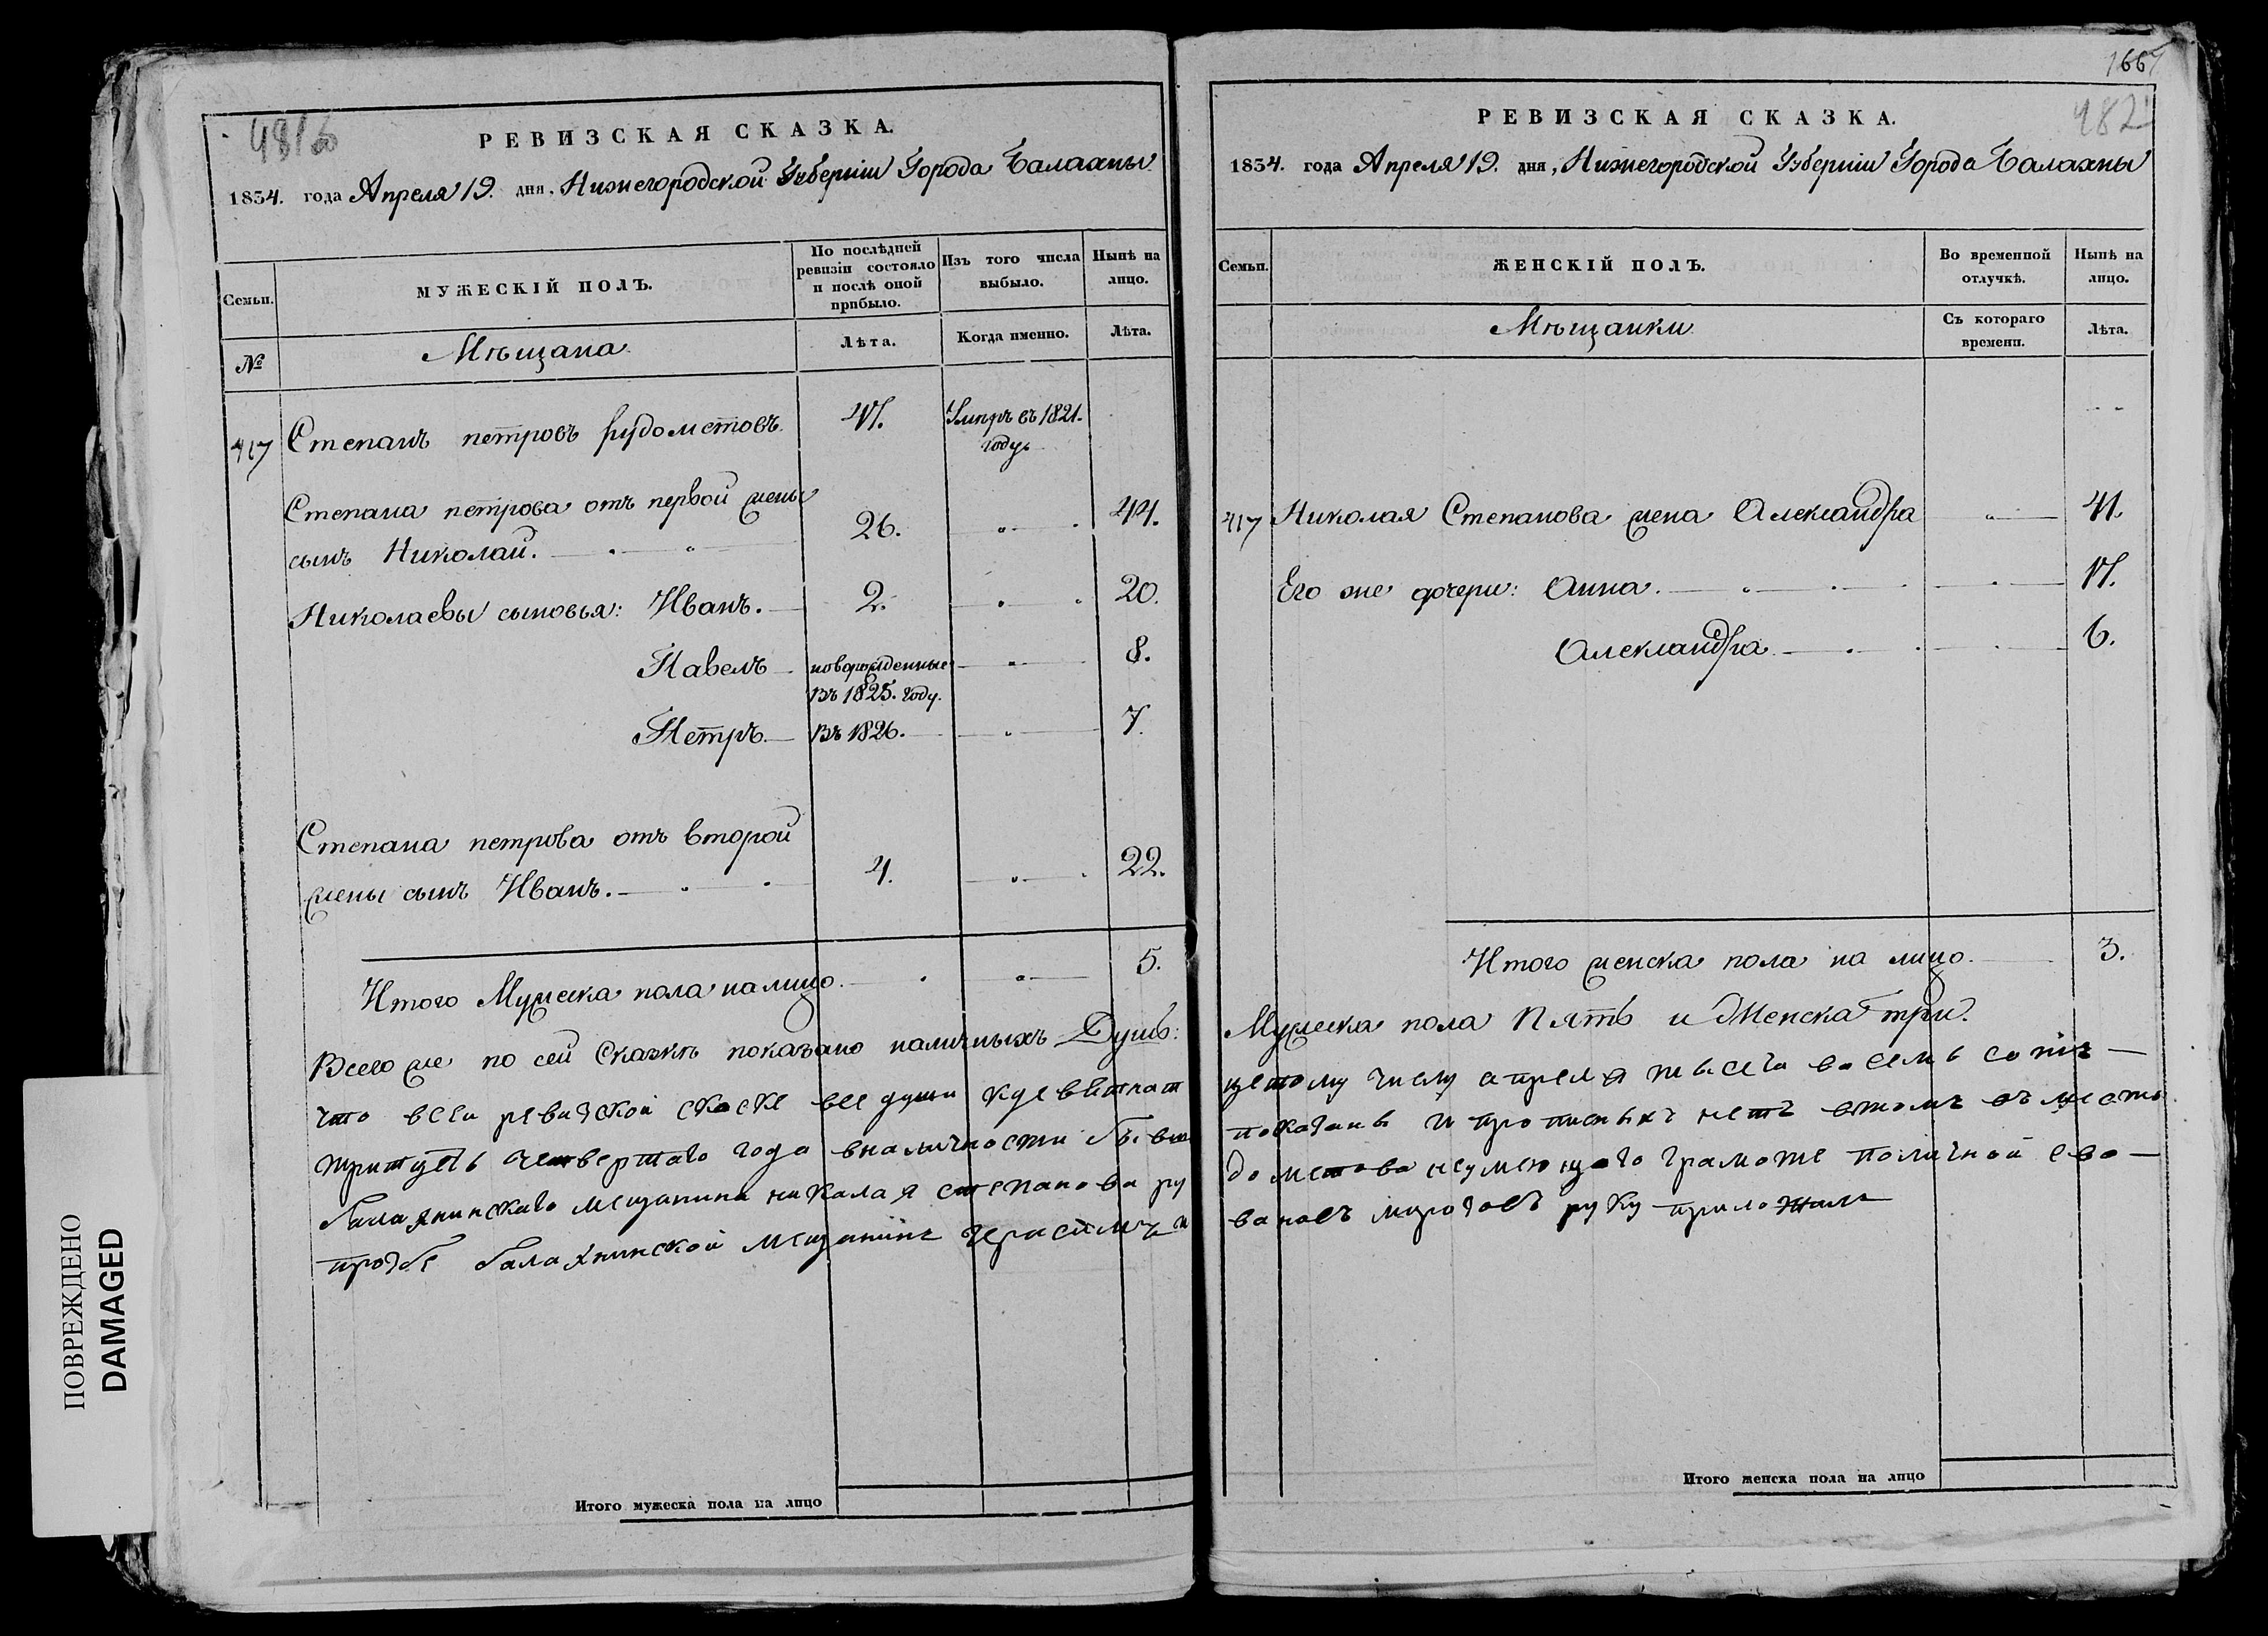 ПОВРЕЖДЕНО
DAMAGED
481б
РЕВИЗСКАЯ СКАЗКА.
1834. года Апреля 19. дня, Нижегородской Губерніи Города Балахны
Семьи.
МУЖЕСКІЙ ПОЛЪ.
По послѣдней ревизіи состояло и послѣ оной прибыло.
Изъ того числа выбыло.
Нынѣ на лицо.
№
Мѣщана
Лѣта.
Когда именно.
Лѣта.
417 Степанъ петровъ рудометовъ. 47. Умиръ въ 1821.
году
Степана петрова отъ первой жены
сынъ Николай. 26. 44.
Николаевы сыновья: Иванъ. 2. 20.
Павелъ новорожденные 8.
Въ 1825. году.
Петръ Въ 1826. 7.
Степана петрова отъ второй
жены сынъ Иванъ. 4. 22.
Итого Мужеска пола налицо. 5.
Всего же по сей Сказкѣ показано наличныхъ Душъ:
что всеи ревизской скаске все души кдевятнат
тритцеть четвертаго года вналичности
балахнинскаго мещанина никалая степанова ру
прозбе балахнинской мещанинъ герасимъ и
Итого мужеска пола на лицо
1667
482
РЕВИЗСКАЯ СКАЗКА.
1834. года Апреля 19. дня, Нижегородской Губерніи Города Балахны
Семьи.
ЖЕНСКІЙ ПОЛЪ.
Во временной отлучкѣ.
Нынѣ на лицо.
Мѣщанки
Съ котораго времени.
Лѣта.
417 Николая Степанова жена Александра 41.
Его же дочери: Анна. 17.
Александра 6.
Итого женска пола на лицо. 3.
Мужеска пола Пять и Женска три.
цетому числу апреля тысеча восемь сотъ
показаны и прописныхъ нетъ втомъ въместо
дометова неумеющаго грамоте поличной ево
вановъ морозовъ руку приложилъ
Итого женска пола на лицо